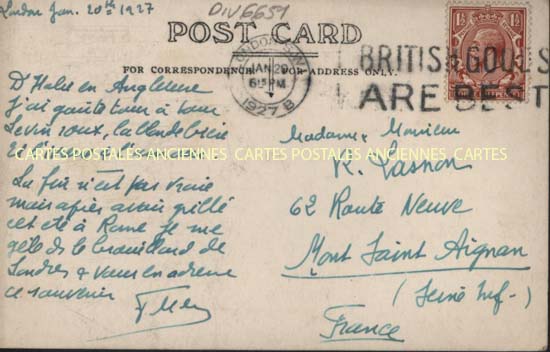 London Jan. 20th 1927
DIV6651
POST CARD
FOR CORRESPONDENCE
FOR ADDRESS ONLY.
LONDON S.W.1
JAN 20
6 15 PM
1927 B
BRITISH GOODS
ARE BEST
D'Italie en Angleterre
j'ai goûté tour à tour
Le vin roux, la blonde bière
CARTES POSTALES ANCIENNES CARTES POSTALES ANCIENNES CARTES
La fin n'est pas vraie
mais après avoir grillé
cet été à Rome je me
gèle ds le brouillard de
Londres & vous en adresse
ce souvenir
Madame, Monsieur
R. Lasnon
62 Route Neuve
Mont Saint Aignan
(Seine Inf-)
France